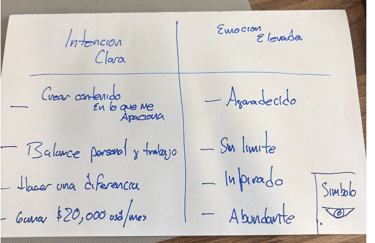 Intencion
Clara
Emocion
Elevada
— Crear contenido
En lo que me
Apaciona
— Agradecido
— Balance personal y trabajo
— Sin limite
— Hacer una diferencia
— Inpirado
— Ganar $20,000 usd/mes
— Abundante
Simbolo